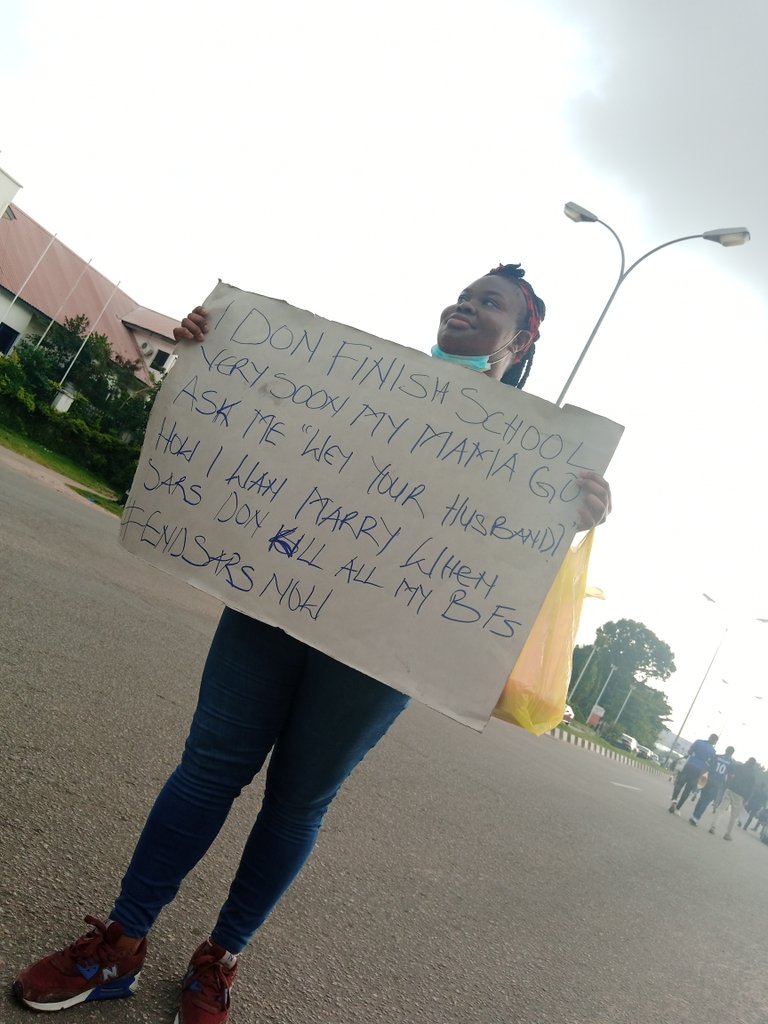 I DON FINISH SCHOOL
VERY SOON MY MAMA GO
ASK ME "WEY YOUR HUSBAND?"
HOW I WAH MARRY WHEN
SARS DON KILL ALL MY BFs
#ENDSARS NOW
10
N